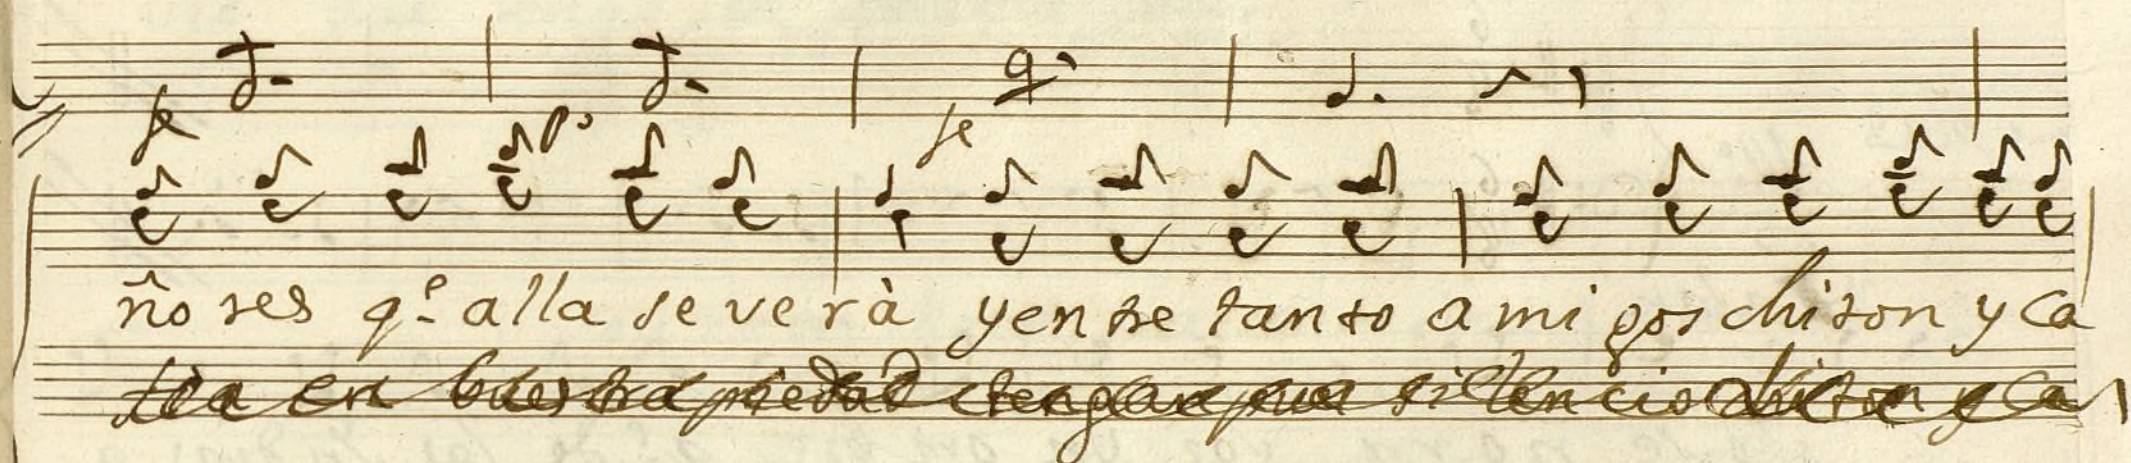 fe pº fe
ño res q.e alla se ve rà y en tre tan to a mi gos chi ton y ca
en buestra piedad tengan pues sillencio chiton y ca